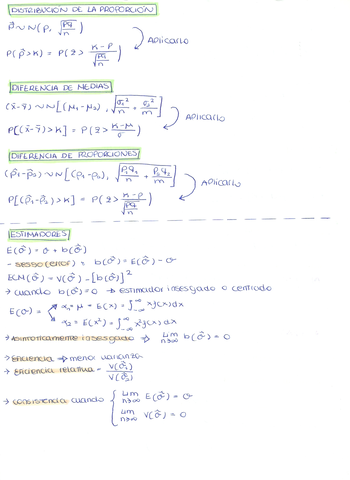 DISTRIBUCIÓN DE LA PROPORCIÓN
p̂ ~ N(p, √(pq/n))
Aplicarlo
P(p̂ > K) = P(z > (K - p)/√(pq/n))
DIFERENCIA DE MEDIAS
(x̄ - ȳ) ~ N[(μ₁ - μ₂), √(σ₁²/n + σ₂²/m)]
Aplicarlo
P[(x̄ - ȳ) > K] = P(z > (K - μ)/σ)
DIFERENCIA DE PROPORCIONES
(p̂₁ - p̂₂) ~ N[(p₁ - p₂), √(p₁q₁/n + p₂q₂/m)]
Aplicarlo
P[(p̂₁ - p̂₂) > K] = P(z > (K - p)/√(pq/n))
ESTIMADORES
E(σ̂) = σ + b(σ̂)
- sesgo (error) = b(σ̂) = E(σ̂) - σ
ECM(σ̂) = V(σ̂) - [b(σ̂)]²
→ cuando b(σ̂) = 0 → estimador insesgado o centrado
E(σ) = α₁ = μ = E(x) = ∫_{-∞}^{∞} x f(x) dx
α₂ = E(x²) = ∫_{-∞}^{∞} x² f(x) dx
→ Asintoticamente insesgado → lim n→∞ b(σ̂) = 0
→ Eficiencia → menor varianza
→ Eficiencia relativa = V(σ̂₁)/V(σ̂₂)
→ consistencia cuando { lim n→∞ E(σ̂) = σ
lim n→∞ V(σ̂) = 0